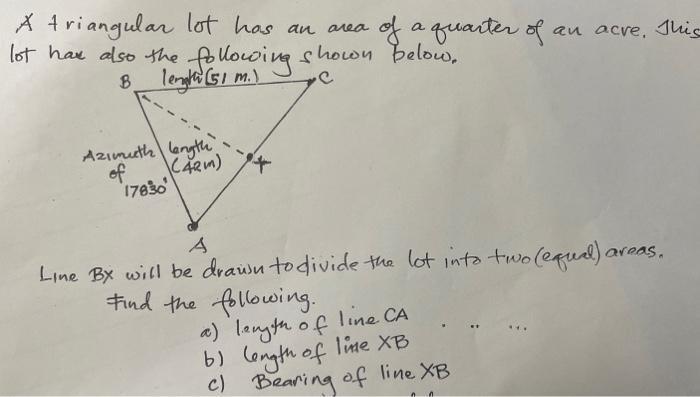 A triangular lot has an area of a quarter of an acre. This
lot has also the following shown below.
B length (51 m.) C
Azimuth length
of (42m) X
178°30'
A
Line BX will be drawn to divide the lot into two (equal) areas.
Find the following.
a) length of line CA . .. ...
b) length of line XB
c) Bearing of line XB